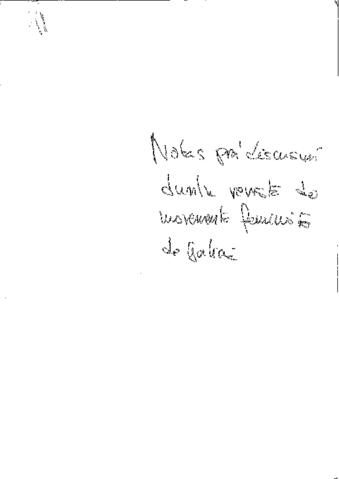 Notas pra discusion
dunha revista do
movemento feminista
de Galiza